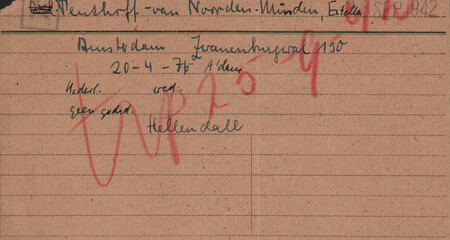 Menthoff - van Noorden-Minden, Estella
SEP. 1942
Amsterdam Zwanenburgwal 190
20-4-75 A'dam
Nederl. wed.
geen godsd.
Hellendall
25-9-